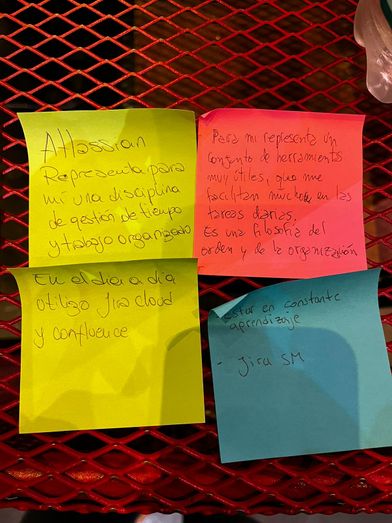 Atlassian
Representa para
mí una disciplina
de gestión de tiempo
y trabajo organizado
Para mí representa un
conjunto de herramientas
muy útiles, que me
facilitan mucho en las
tareas diarias.
Es una filosofía del
orden y de la organización
En el día a día
utilizo Jira cloud
y confluence
Estar en constante
aprendizaje
- Jira SM